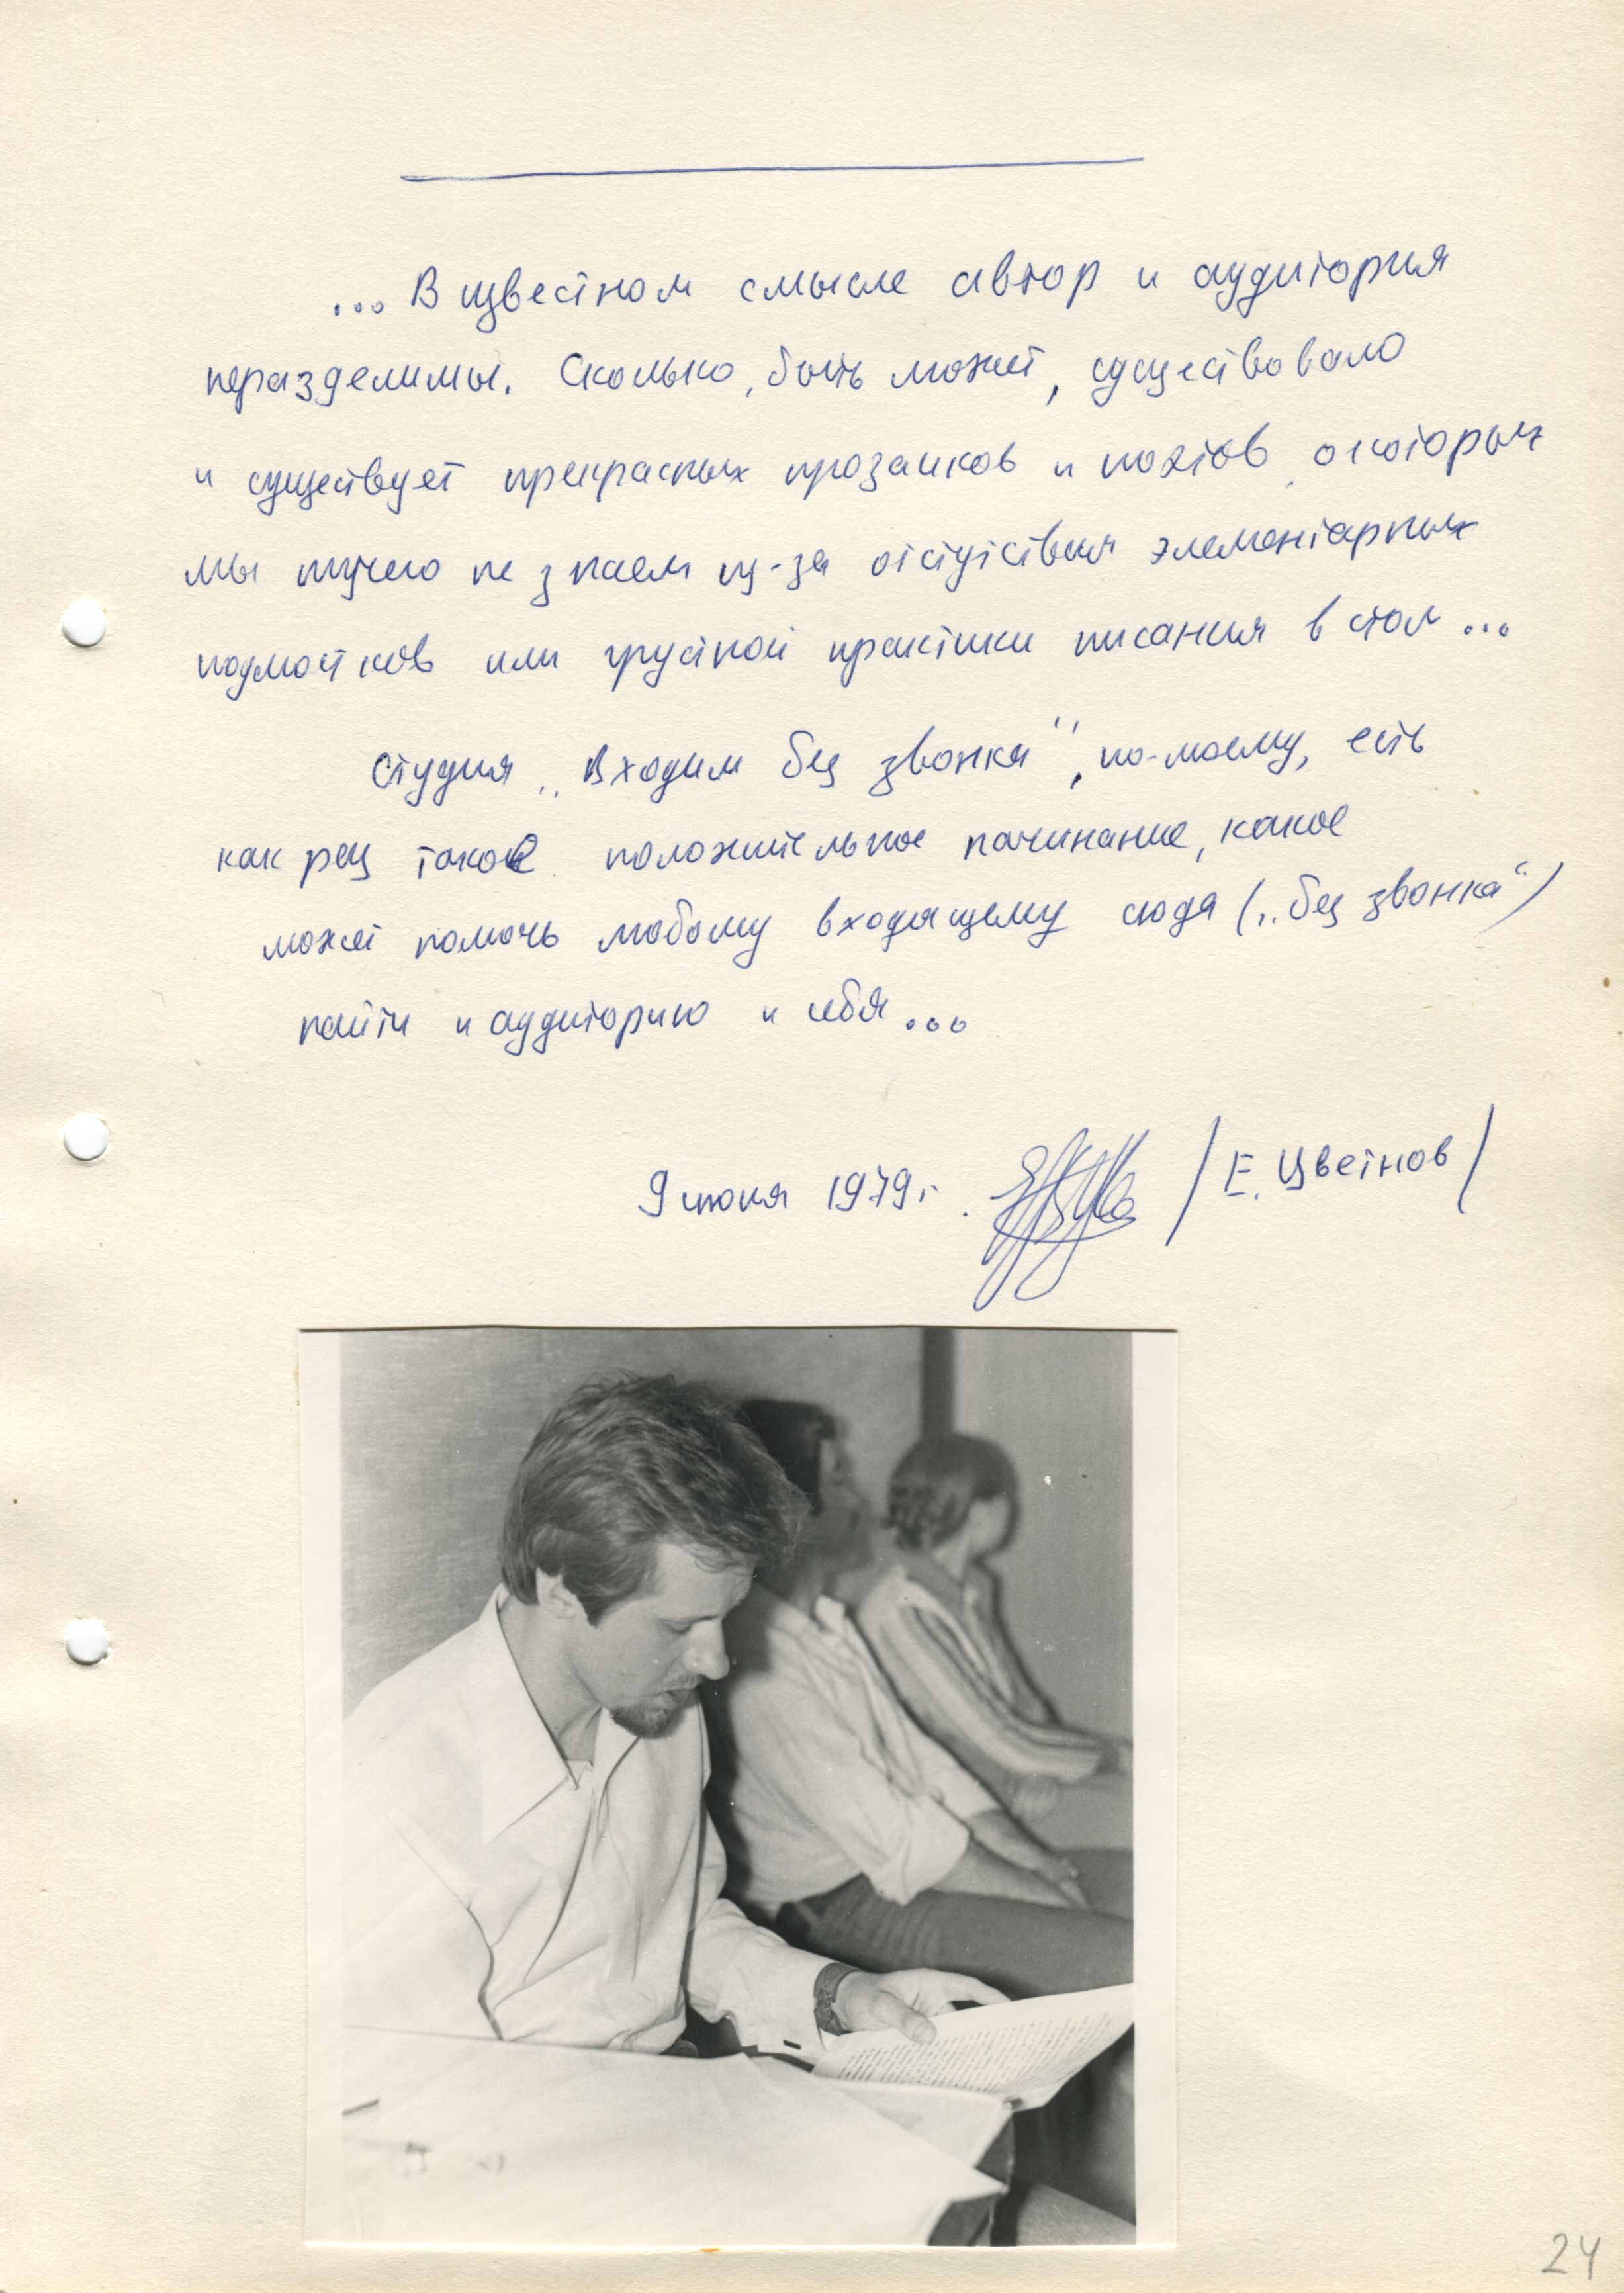 ... В известном смысле автор и аудитория
неразделимы. Сколько, быть может, существовало
и существует прекрасных прозаиков и поэтов, о которых
мы ничего не знаем из-за отсутствия элементарных
подмостков или грустной практики писания в стол...
Студия „Входим без звонка", по-моему, есть
как раз такое положительное начинание, какое
может помочь любому входящему сюда („без звонка")
найти и аудиторию и себя...
9 июня 1979 г. /Е. Цветков/
24